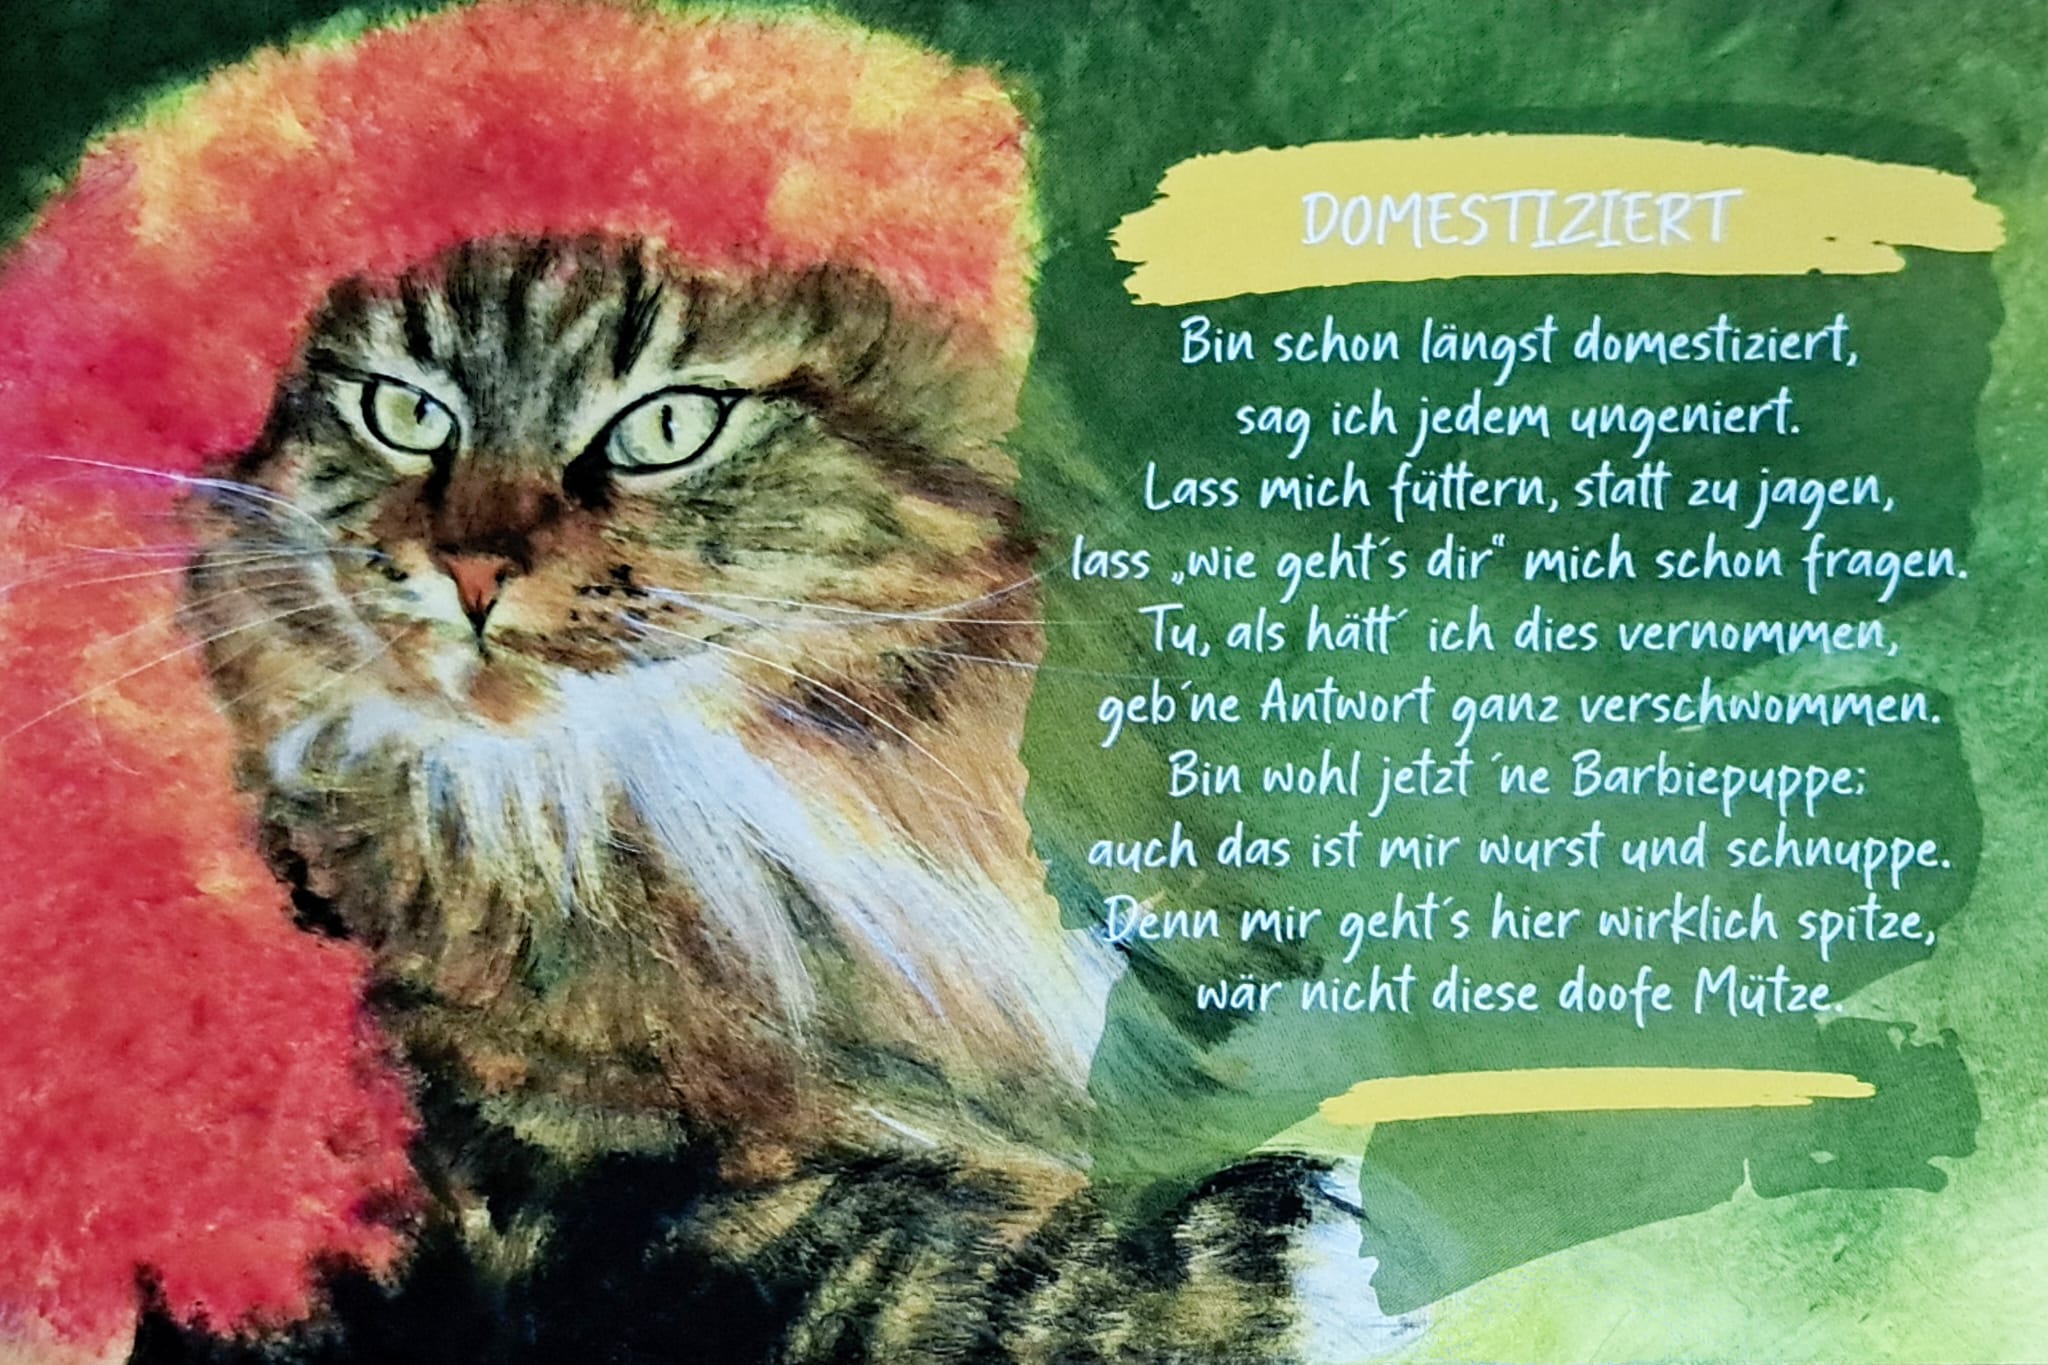 DOMESTIZIERT
Bin schon längst domestiziert,
sag ich jedem ungeniert.
Lass mich füttern, statt zu jagen,
lass „wie geht´s dir“ mich schon fragen.
Tu, als hätt´ ich dies vernommen,
geb´ne Antwort ganz verschwommen.
Bin wohl jetzt ´ne Barbiepuppe;
auch das ist mir wurst und schnuppe.
Denn mir geht´s hier wirklich spitze,
wär nicht diese doofe Mütze.